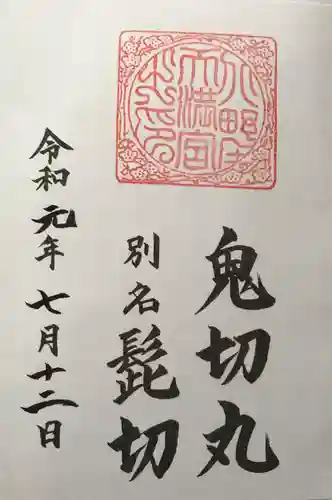 北野天満宮之印
鬼切丸
別名
髭切
令和元年七月十二日